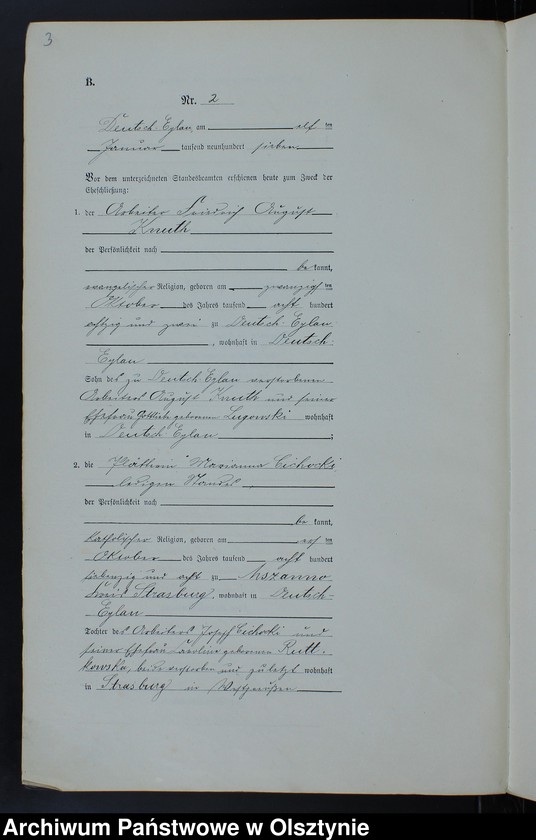 3
B.
Nr. 2
Deutsch-Eylau, am elf ten
Januar tausend neunhundert sieben
Vor dem unterzeichneten Standesbeamten erschienen heute zum Zweck der
Eheschließung:
1. der Arbeiter Friedrich August
Knuth
der Persönlichkeit nach
be kannt,
evangelischer Religion, geboren am zwanzigsten
Oktober des Jahres tausend acht hundert
achtzig und zwei zu Deutsch-Eylau
, wohnhaft in Deutsch-
Eylau
Sohn des zu Deutsch-Eylau verstorbenen
Arbeiters August Knuth und seiner
Ehefrau geborenen Lugowski wohnhaft
in Deutsch Eylau ;
2. die Plätterin Marianna Cichocki
ledigen Standes
der Persönlichkeit nach
be kannt,
katholischer Religion, geboren am ten
Oktober des Jahres tausend acht hundert
siebenzig und acht zu Mszanno
Kreis Strasburg, wohnhaft in Deutsch-
Eylau
Tochter des Arbeiters Josef Cichocki und
seiner Ehefrau geborenen Rutt-
kowska, beide verstorben und zuletzt wohnhaft
in Strasburg in Westpreußen
Archiwum Państwowe w Olsztynie